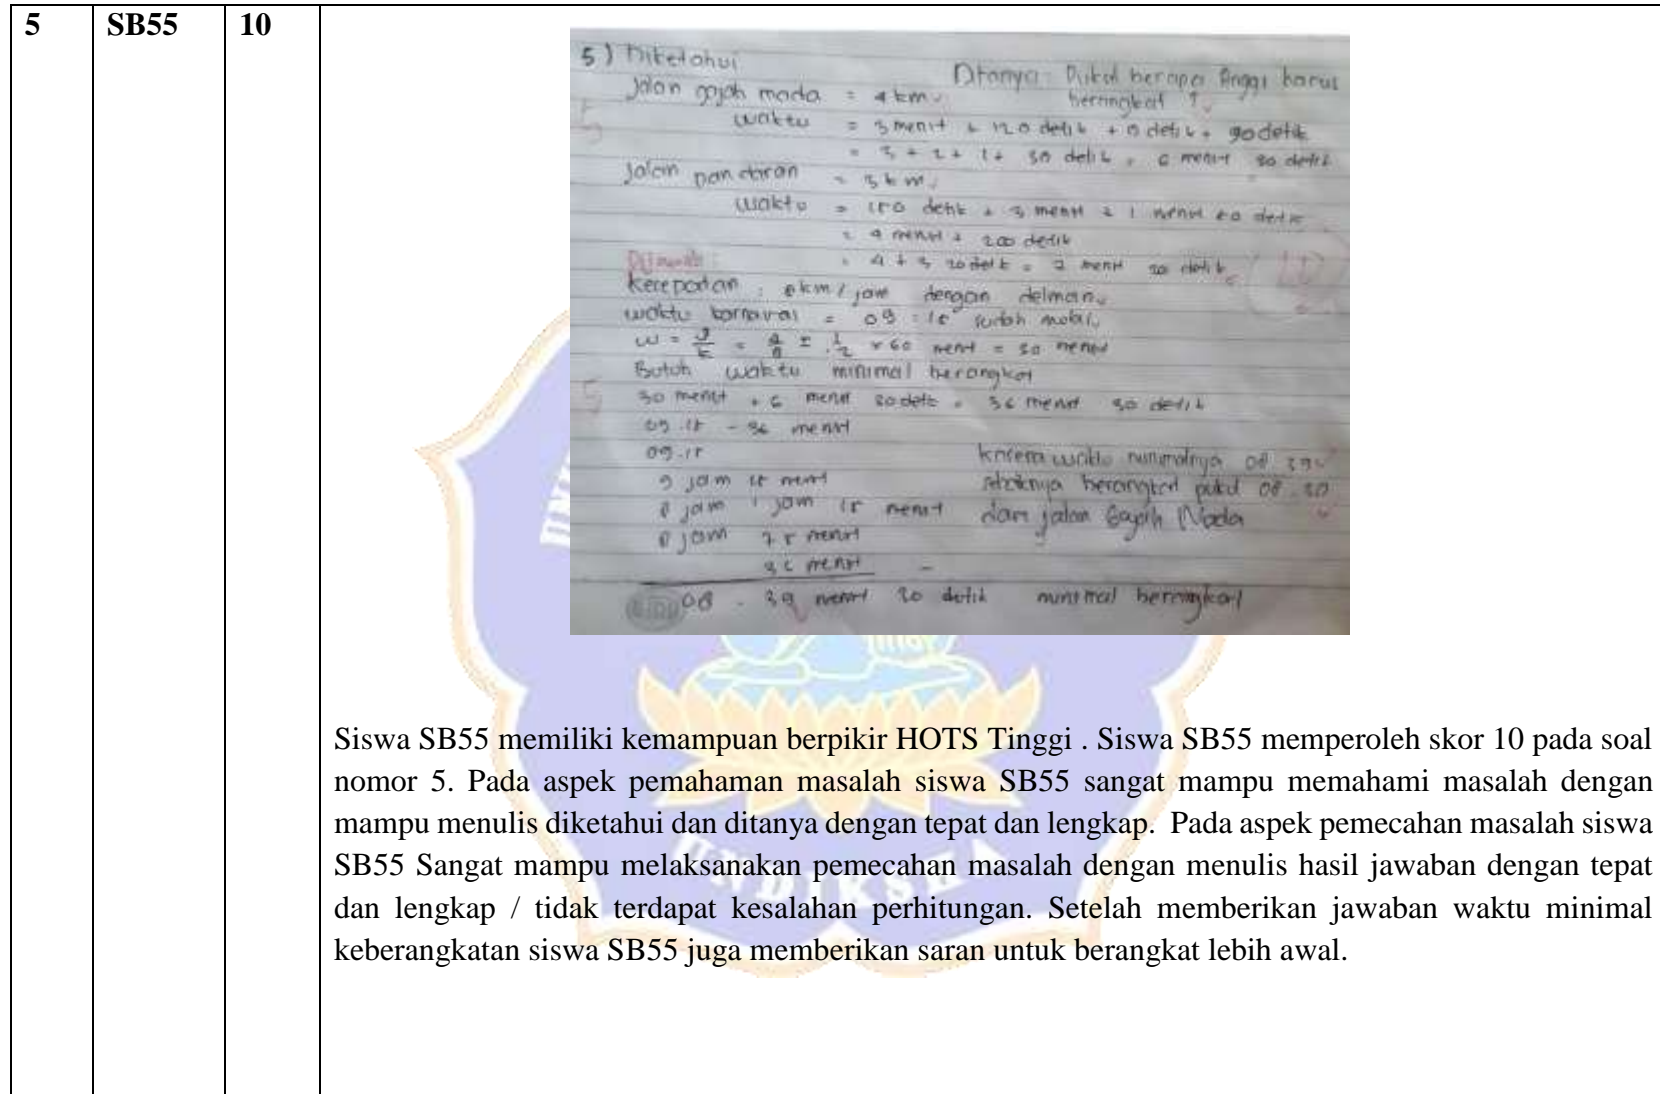 5 SB55 10
5) Diketahui
Ditanya: Pukul berapa Anggi harus
berangkat ?
Jalan gajah mada = 4 km
waktu = 3 menit + 120 detik + detik + 90 detik
= 3 + 2 + 1 + 30 detik = 6 menit 30 detik
Jalan pandaran = 3 km
waktu = detik + 3 menit + 1 menit detik
= 4 menit + 200 detik
= 4 + 3 20 detik = 7 menit 20 detik
Dijawab :
kecepatan : 8 km / jam dengan delman
waktu karnaval = 09 : 15 sudah mulai
w = = = 1/2 × 60 menit = 30 menit
Butuh waktu minimal berangkat
30 menit + 6 menit 30 detik = 36 menit 30 detik
09.15 - 36 menit
09.15
9 jam 15 menit
8 jam 1 jam 15 menit
8 jam 75 menit
36 menit -
08 - 39 menit 30 detik minimal berangkat
karena waktu minimalnya 08.39
sebaiknya berangkat pukul 08.30
dari jalan Gajah Mada
UNDIKSHA
Siswa SB55 memiliki kemampuan berpikir HOTS Tinggi . Siswa SB55 memperoleh skor 10 pada soal
nomor 5. Pada aspek pemahaman masalah siswa SB55 sangat mampu memahami masalah dengan
mampu menulis diketahui dan ditanya dengan tepat dan lengkap. Pada aspek pemecahan masalah siswa
SB55 Sangat mampu melaksanakan pemecahan masalah dengan menulis hasil jawaban dengan tepat
dan lengkap / tidak terdapat kesalahan perhitungan. Setelah memberikan jawaban waktu minimal
keberangkatan siswa SB55 juga memberikan saran untuk berangkat lebih awal.